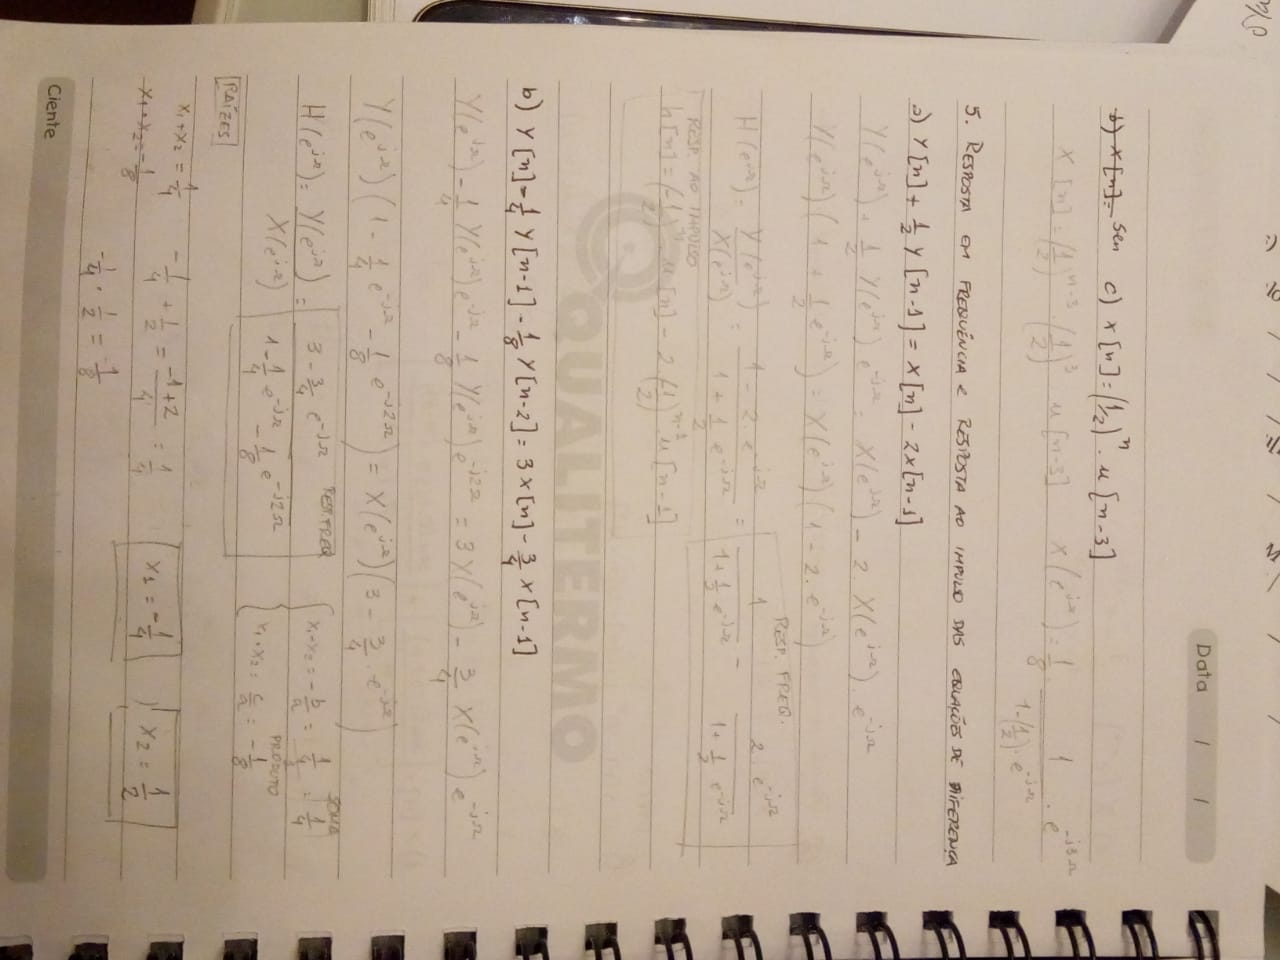 Data / /
b) x[n] = sen c) x[n] = (1/2)^n . u[n-3]
x[n] = (1/2)^{n-3} . (1/2)^3 u[n-3] X(e^{jΩ}) = 1/8 . 1/(1-(1/2).e^{-jΩ}) . e^{-j3Ω}
5. RESPOSTA EM FREQUÊNCIA E RESPOSTA AO IMPULSO DAS EQUAÇÕES DE DIFERENÇA
a) y[n] + 1/2 y[n-1] = x[n] - 2x[n-1]
Y(e^{jΩ}) + 1/2 Y(e^{jΩ}) e^{-jΩ} = X(e^{jΩ}) - 2 X(e^{jΩ}) . e^{-jΩ}
Y(e^{jΩ}) (1 + 1/2 e^{-jΩ}) = X(e^{jΩ}) (1 - 2 . e^{-jΩ})
RESP. FREQ.
H(e^{jΩ}) = Y(e^{jΩ})/X(e^{jΩ}) = (1 - 2 . e^{-jΩ})/(1 + 1/2 e^{-jΩ}) = 1/(1 + 1/2 e^{-jΩ}) - 2 . e^{-jΩ}/(1 + 1/2 e^{-jΩ})
RESP. AO IMPULSO
h[n] = (-1/2)^n u[n] - 2 (-1/2)^{n-1} u[n-1]
QUALITERMO
b) y[n] - 1/4 y[n-1] - 1/8 y[n-2] = 3x[n] - 3/4 x[n-1]
Y(e^{jΩ}) - 1/4 Y(e^{jΩ}) e^{-jΩ} - 1/8 Y(e^{jΩ}) e^{-j2Ω} = 3X(e^{jΩ}) - 3/4 X(e^{jΩ}) e^{-jΩ}
Y(e^{jΩ}) (1 - 1/4 e^{-jΩ} - 1/8 e^{-j2Ω}) = X(e^{jΩ}) (3 - 3/4 . e^{-jΩ})
H(e^{jΩ}) = Y(e^{jΩ})/X(e^{jΩ}) = (3 - 3/4 e^{-jΩ})/(1 - 1/4 e^{-jΩ} - 1/8 e^{-j2Ω}) RESP. FREQ
x1+x2 = -b/a = 1/4 = 1/4 SOMA
x1.x2 = c/a = -1/8 PRODUTO
RAÍZES
x1+x2 = 1/4 -1/4 + 1/2 = (-1+2)/4 = 1/4 x1 = -1/4 x2 = 1/2
x1.x2 = -1/8 -1/4 . 1/2 = -1/8
Ciente